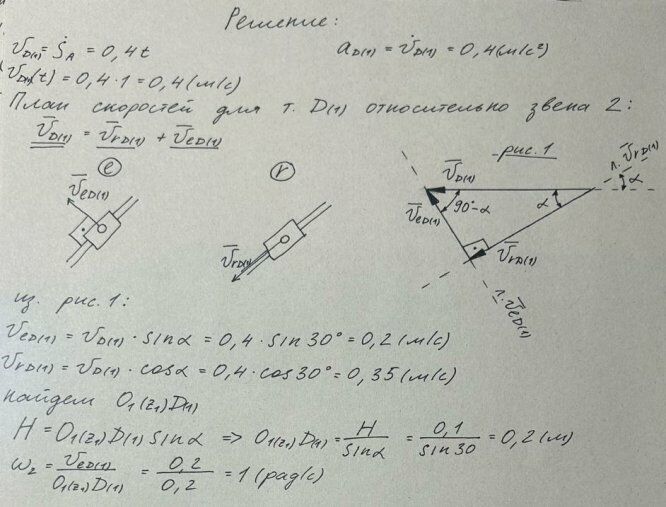 Решение:
V̄D(1) = ṠA = 0,4t    aD(1) = V̇D(1) = 0,4 (м/с²)
VD(1)(t) = 0,4·1 = 0,4 (м/с)
План скоростей для т. D(1) относительно звена 2:
V̄D(1) = V̄rD(1) + V̄eD(1)
e
r
V̄eD(1)
V̄rD(1)
рис. 1
л. V̄rD(1)
V̄D(1)
α
α
90°-α
V̄eD(1)
V̄rD(1)
л. V̄eD(1)
из рис. 1:
VeD(1) = VD(1) · sinα = 0,4 · sin 30° = 0,2 (м/с)
VrD(1) = VD(1) · cosα = 0,4 · cos 30° = 0,35 (м/с)
найдем O1(z1)D(1)
H = O1(z1)D(1) sinα => O1(z1)D(1) = H / sinα = 0,1 / sin 30 = 0,2 (м)
ω2 = VeD(1) / O1(z1)D(1) = 0,2 / 0,2 = 1 (рад/с)